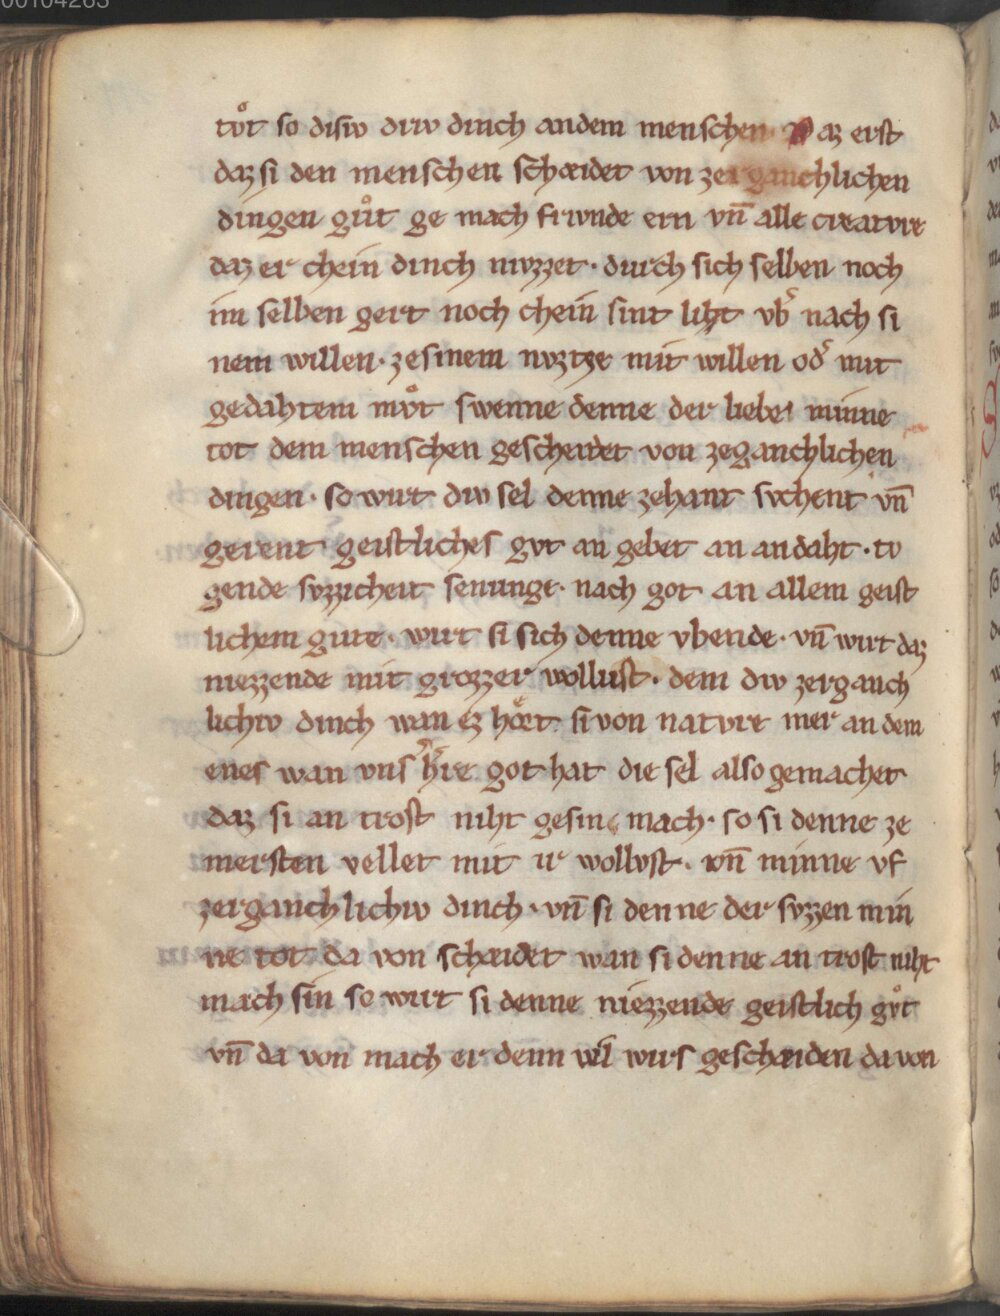 00104263
tvͦt so disiv driv dinch andem menschen. Daz erst
daz si den menschen schæidet von zerganchlichen
dingen gvͦt ge mach frivnde ern vn̄ alle creatvre
daz er chein dinch nivzzet · durch sich selben noch
im selben gert noch chein sint liht vb̾ nach si
nem willen · ze sinem nvztze mit willen od̾ mit
gedahtem mvͦt swenne denne der liebe minne
tot dem menschen gescheidet von zeganchlichen
dingen · so wirt div sel denne zehant svchent vn̄
gerent geistliches gvt an gebet an andaht · tv
gende svzzicheit senunge · nach got an allem geist
lichem gute · wirt si sich denne vbende · vn̄ wirt daz
niezzende mit grozzer wollust · dem div zerganch
lichiv dinch wan ez hoͤrt si von natvre mer an dem
enes wan vns h̾re got hat die sel also gemachet
daz si an trost niht gesin mach · so si denne ze
mersten vellet mit ir wollvst · vn̄ minne vf
zerganchlichiv dinch · vn̄ si denne der svzzen min
ne tot da von schæidet wan si denne an trost niht
mach sin so wirt si denne niezzende geistlich gvͦt
vn̄ da von mach er denn wirs geschæiden da von